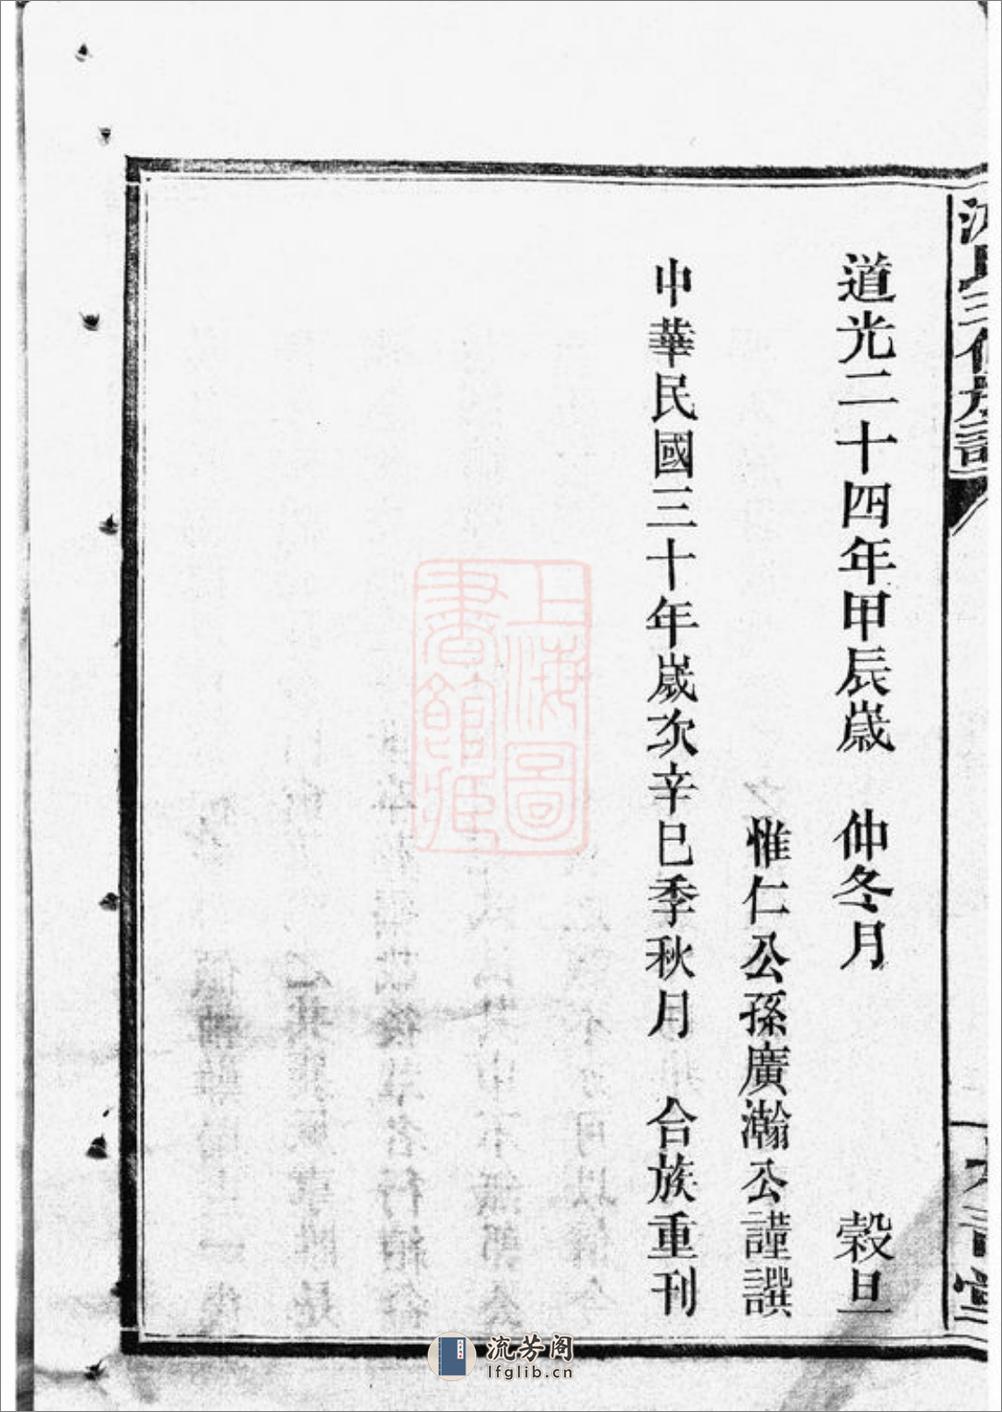 道光二十四年甲辰歲　仲冬月　穀旦
惟仁公孫廣瀚公謹譔
中華民國三十年歲次辛巳季秋月　合族重刊
上海圖書館藏
流芳阁
lfglib.cn